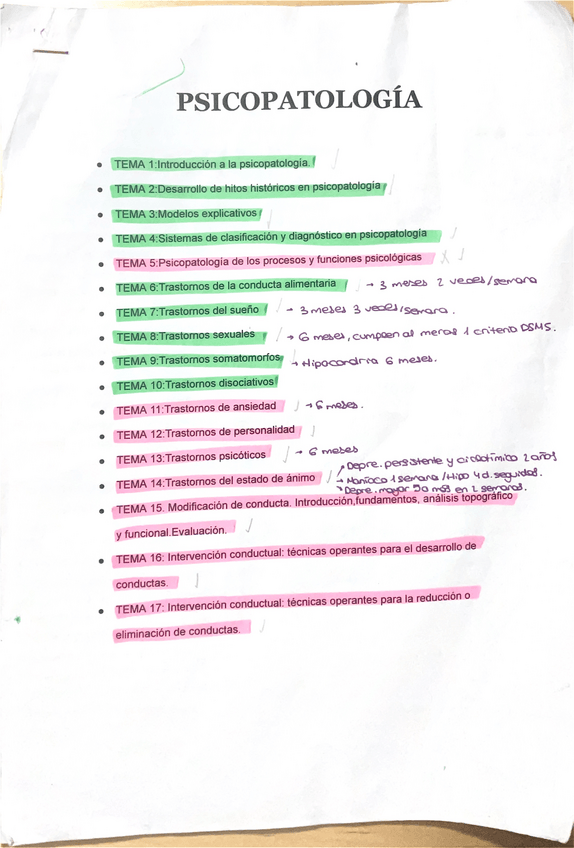 PSICOPATOLOGÍA
• TEMA 1:Introducción a la psicopatología.
• TEMA 2:Desarrollo de hitos históricos en psicopatología
• TEMA 3:Modelos explicativos
• TEMA 4:Sistemas de clasificación y diagnóstico en psicopatología
• TEMA 5:Psicopatología de los procesos y funciones psicológicas
• TEMA 6:Trastornos de la conducta alimentaria → 3 meses 2 veces/semana
• TEMA 7:Trastornos del sueño → 3 meses 3 veces/semana.
• TEMA 8:Trastornos sexuales → 6 meses, cumplen al menos 1 criterio DSM5.
• TEMA 9:Trastornos somatomorfos → Hipocondria 6 meses.
• TEMA 10:Trastornos disociativos
• TEMA 11:Trastornos de ansiedad → 6 meses.
• TEMA 12:Trastornos de personalidad
• TEMA 13:Trastornos psicóticos → 6 meses
→ Depre. persistente y ciclotímico 2 años
• TEMA 14:Trastornos del estado de ánimo → Maníaco 1 semana / Hipo 4 d. seguidos.
→ Depre. mayor 5 o más en 2 semanas.
• TEMA 15. Modificación de conducta. Introducción,fundamentos, análisis topográfico
y funcional.Evaluación.
• TEMA 16: Intervención conductual: técnicas operantes para el desarrollo de
conductas.
• TEMA 17: Intervención conductual: técnicas operantes para la reducción o
eliminación de conductas.